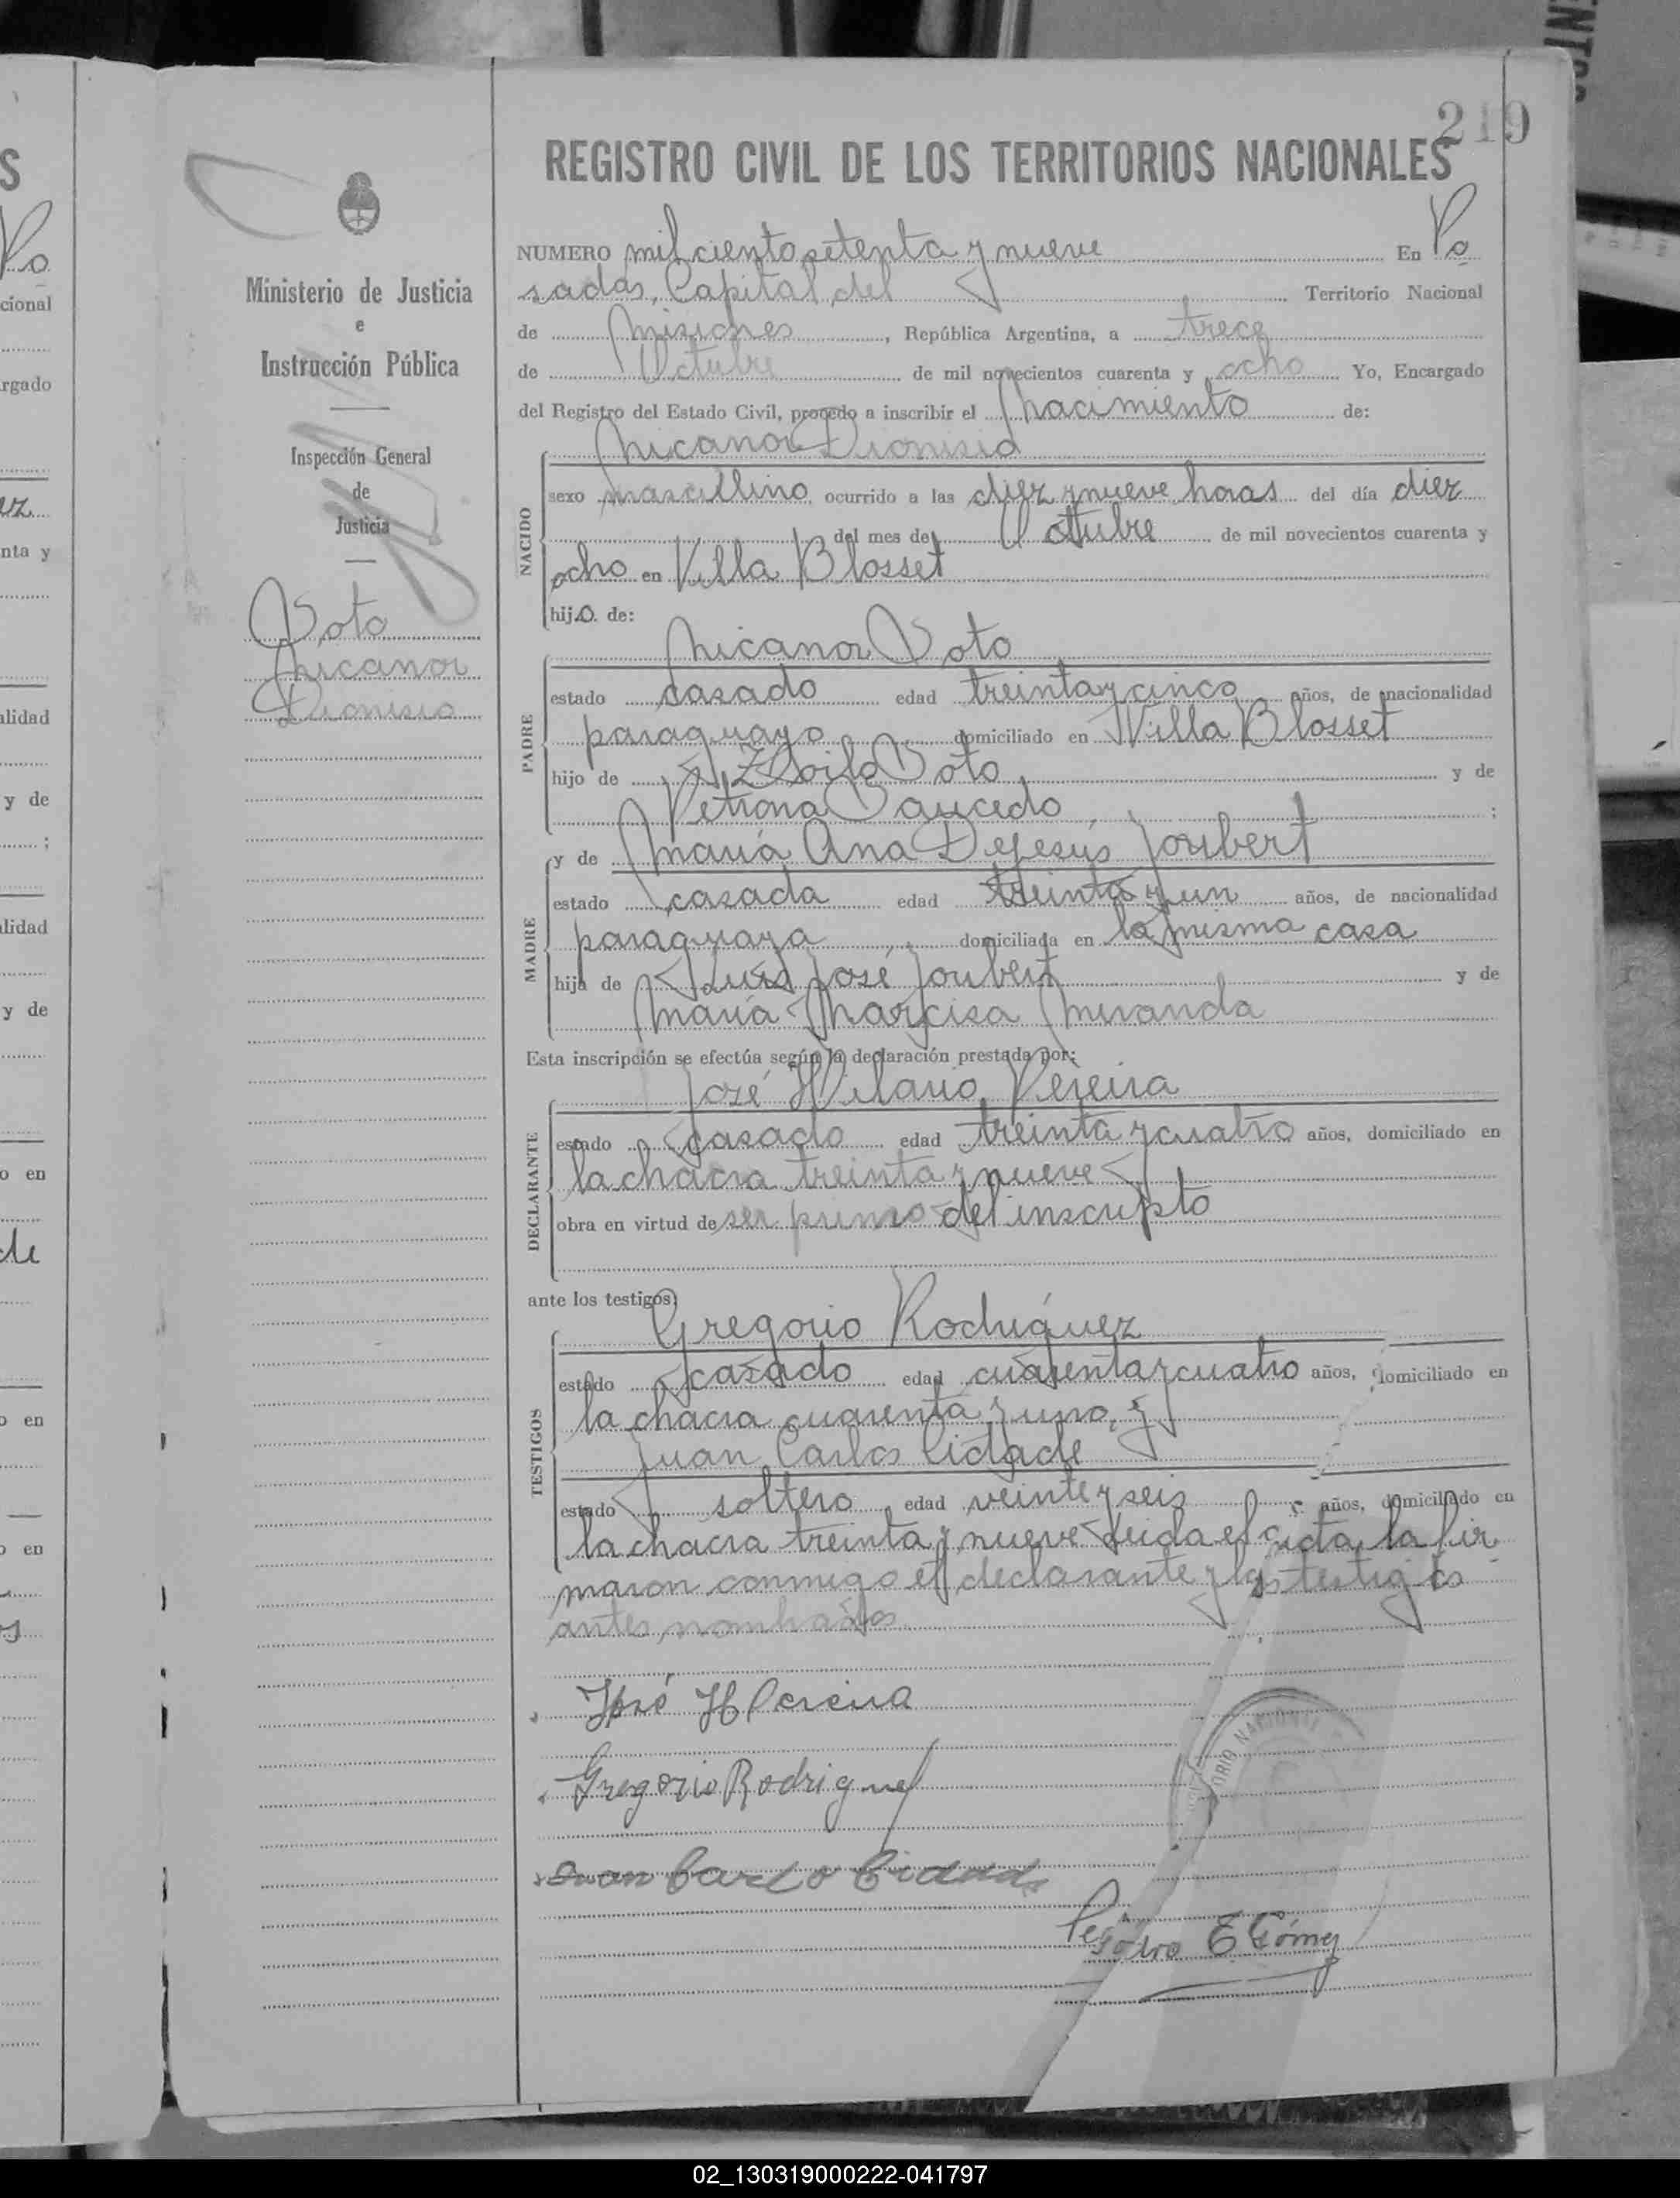 219
REGISTRO CIVIL DE LOS TERRITORIOS NACIONALES
Ministerio de Justicia
e
Instrucción Pública
Inspección General
de
Justicia
Soto
Nicanor
Dionisio
NUMERO mil ciento setenta y nueve En Po
sadas, Capital del Territorio Nacional
de Misiones, República Argentina, a trece
de Octubre de mil novecientos cuarenta y ocho Yo, Encargado
del Registro del Estado Civil, procedo a inscribir el nacimiento de:
Nicanor Dionisio
NACIDO
sexo masculino ocurrido a las diez y nueve horas del día diez
del mes de Octubre de mil novecientos cuarenta y
ocho en Villa Blosset
hijo de:
Nicanor Soto
PADRE
estado casado edad treinta y cinco años, de nacionalidad
paraguayo domiciliado en Villa Blosset
hijo de Soto y de
Petrona Saucedo ;
y de María Ana Dejesús Joubert
MADRE
estado casada edad treinta y un años, de nacionalidad
paraguaya domiciliada en la misma casa
hija de Luis José Joubert y de
María Narcisa Miranda
Esta inscripción se efectúa según la declaración prestada por:
José Hilario Pereira
DECLARANTE
estado casado edad treinta y cuatro años, domiciliado en
la chacra treinta y nueve
obra en virtud de ser primo del inscripto
ante los testigos:
Gregorio Rodríguez
TESTIGOS
estado casado edad cuarenta y cuatro años, domiciliado en
la chacra cuarenta y uno, y
Juan Carlos Cidade
estado soltero edad veinte y seis años, domiciliado en
la chacra treinta y nueve Leida el acta, la fir
maron conmigo el declarante y los testigos
antes nombrados
José H Pereira
Gregorio Rodriguez
Juan Carlo Cidade
E Gómez
02_130319000222-041797